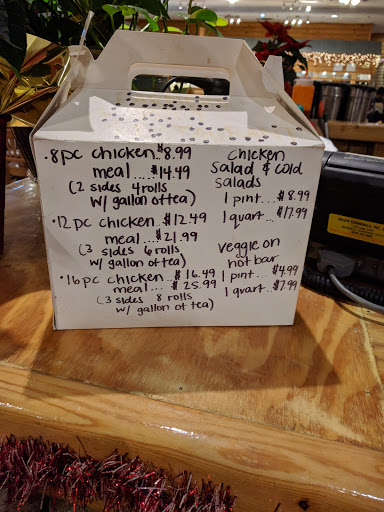 • 8pc chicken..$8.99
meal....$14.49
(2 sides 4rolls
w/ gallon of tea)
• 12pc chicken..$12.49
meal...$21.99
(3 sides 6 rolls
w/ gallon of tea)
• 16pc chicken...$16.49
meal....$25.99
(3 sides 8 rolls
w/ gallon of tea)
chicken
salad & cold
salads
1 pint....$8.99
1 quart...$17.99
veggie on
hot bar
1 pint...$4.99
1 quart...$7.99